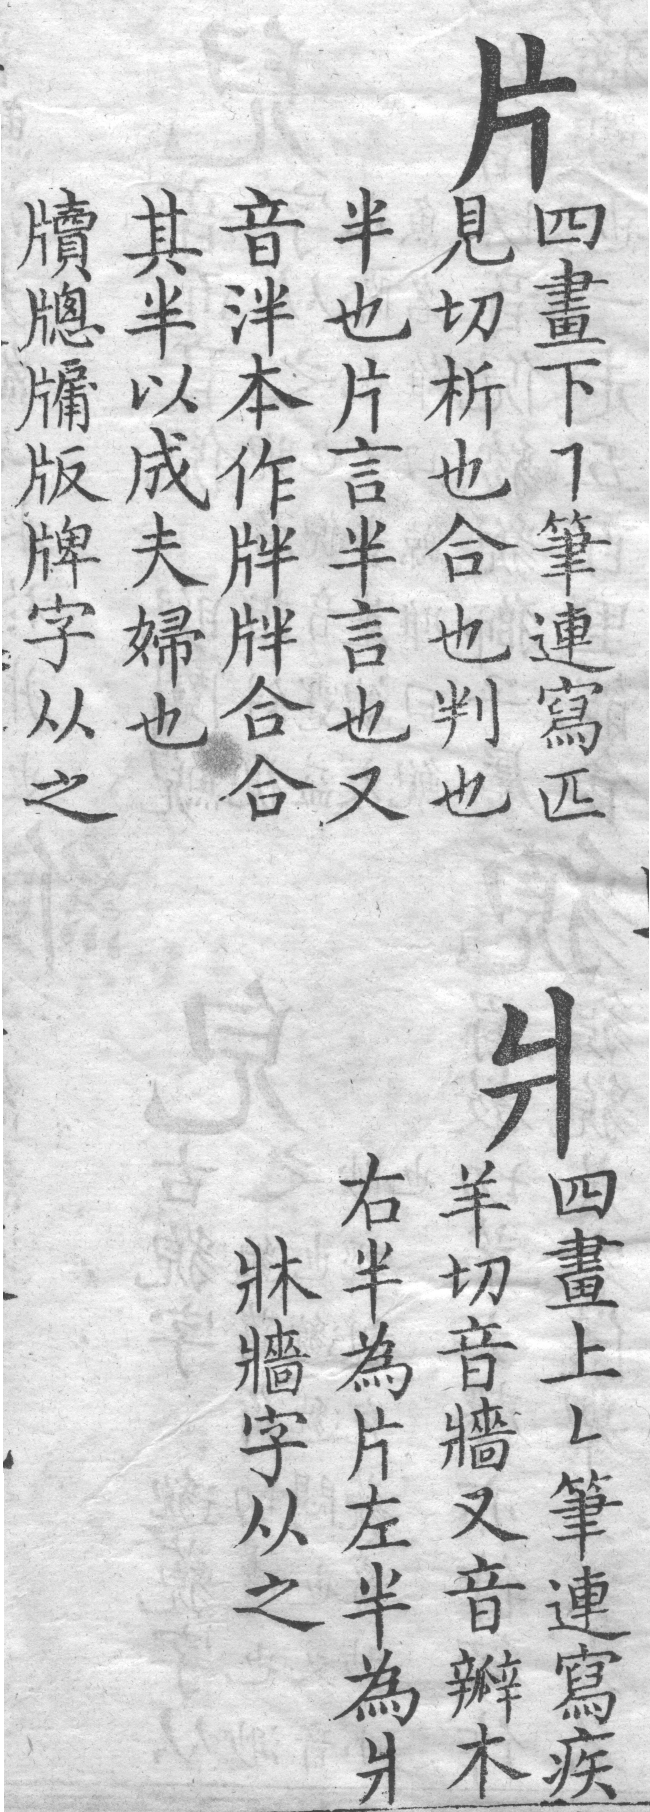 片
四畫下㇕筆連寫匹
見切析也合也判也
半也片言半言也又
音泮本作牉牉合合
其半以成夫婦也
牘牎牗版牌字从之
爿
四畫上㇗筆連寫疾
羊切音牆又音瓣木
右半為片左半為爿
牀牆字从之